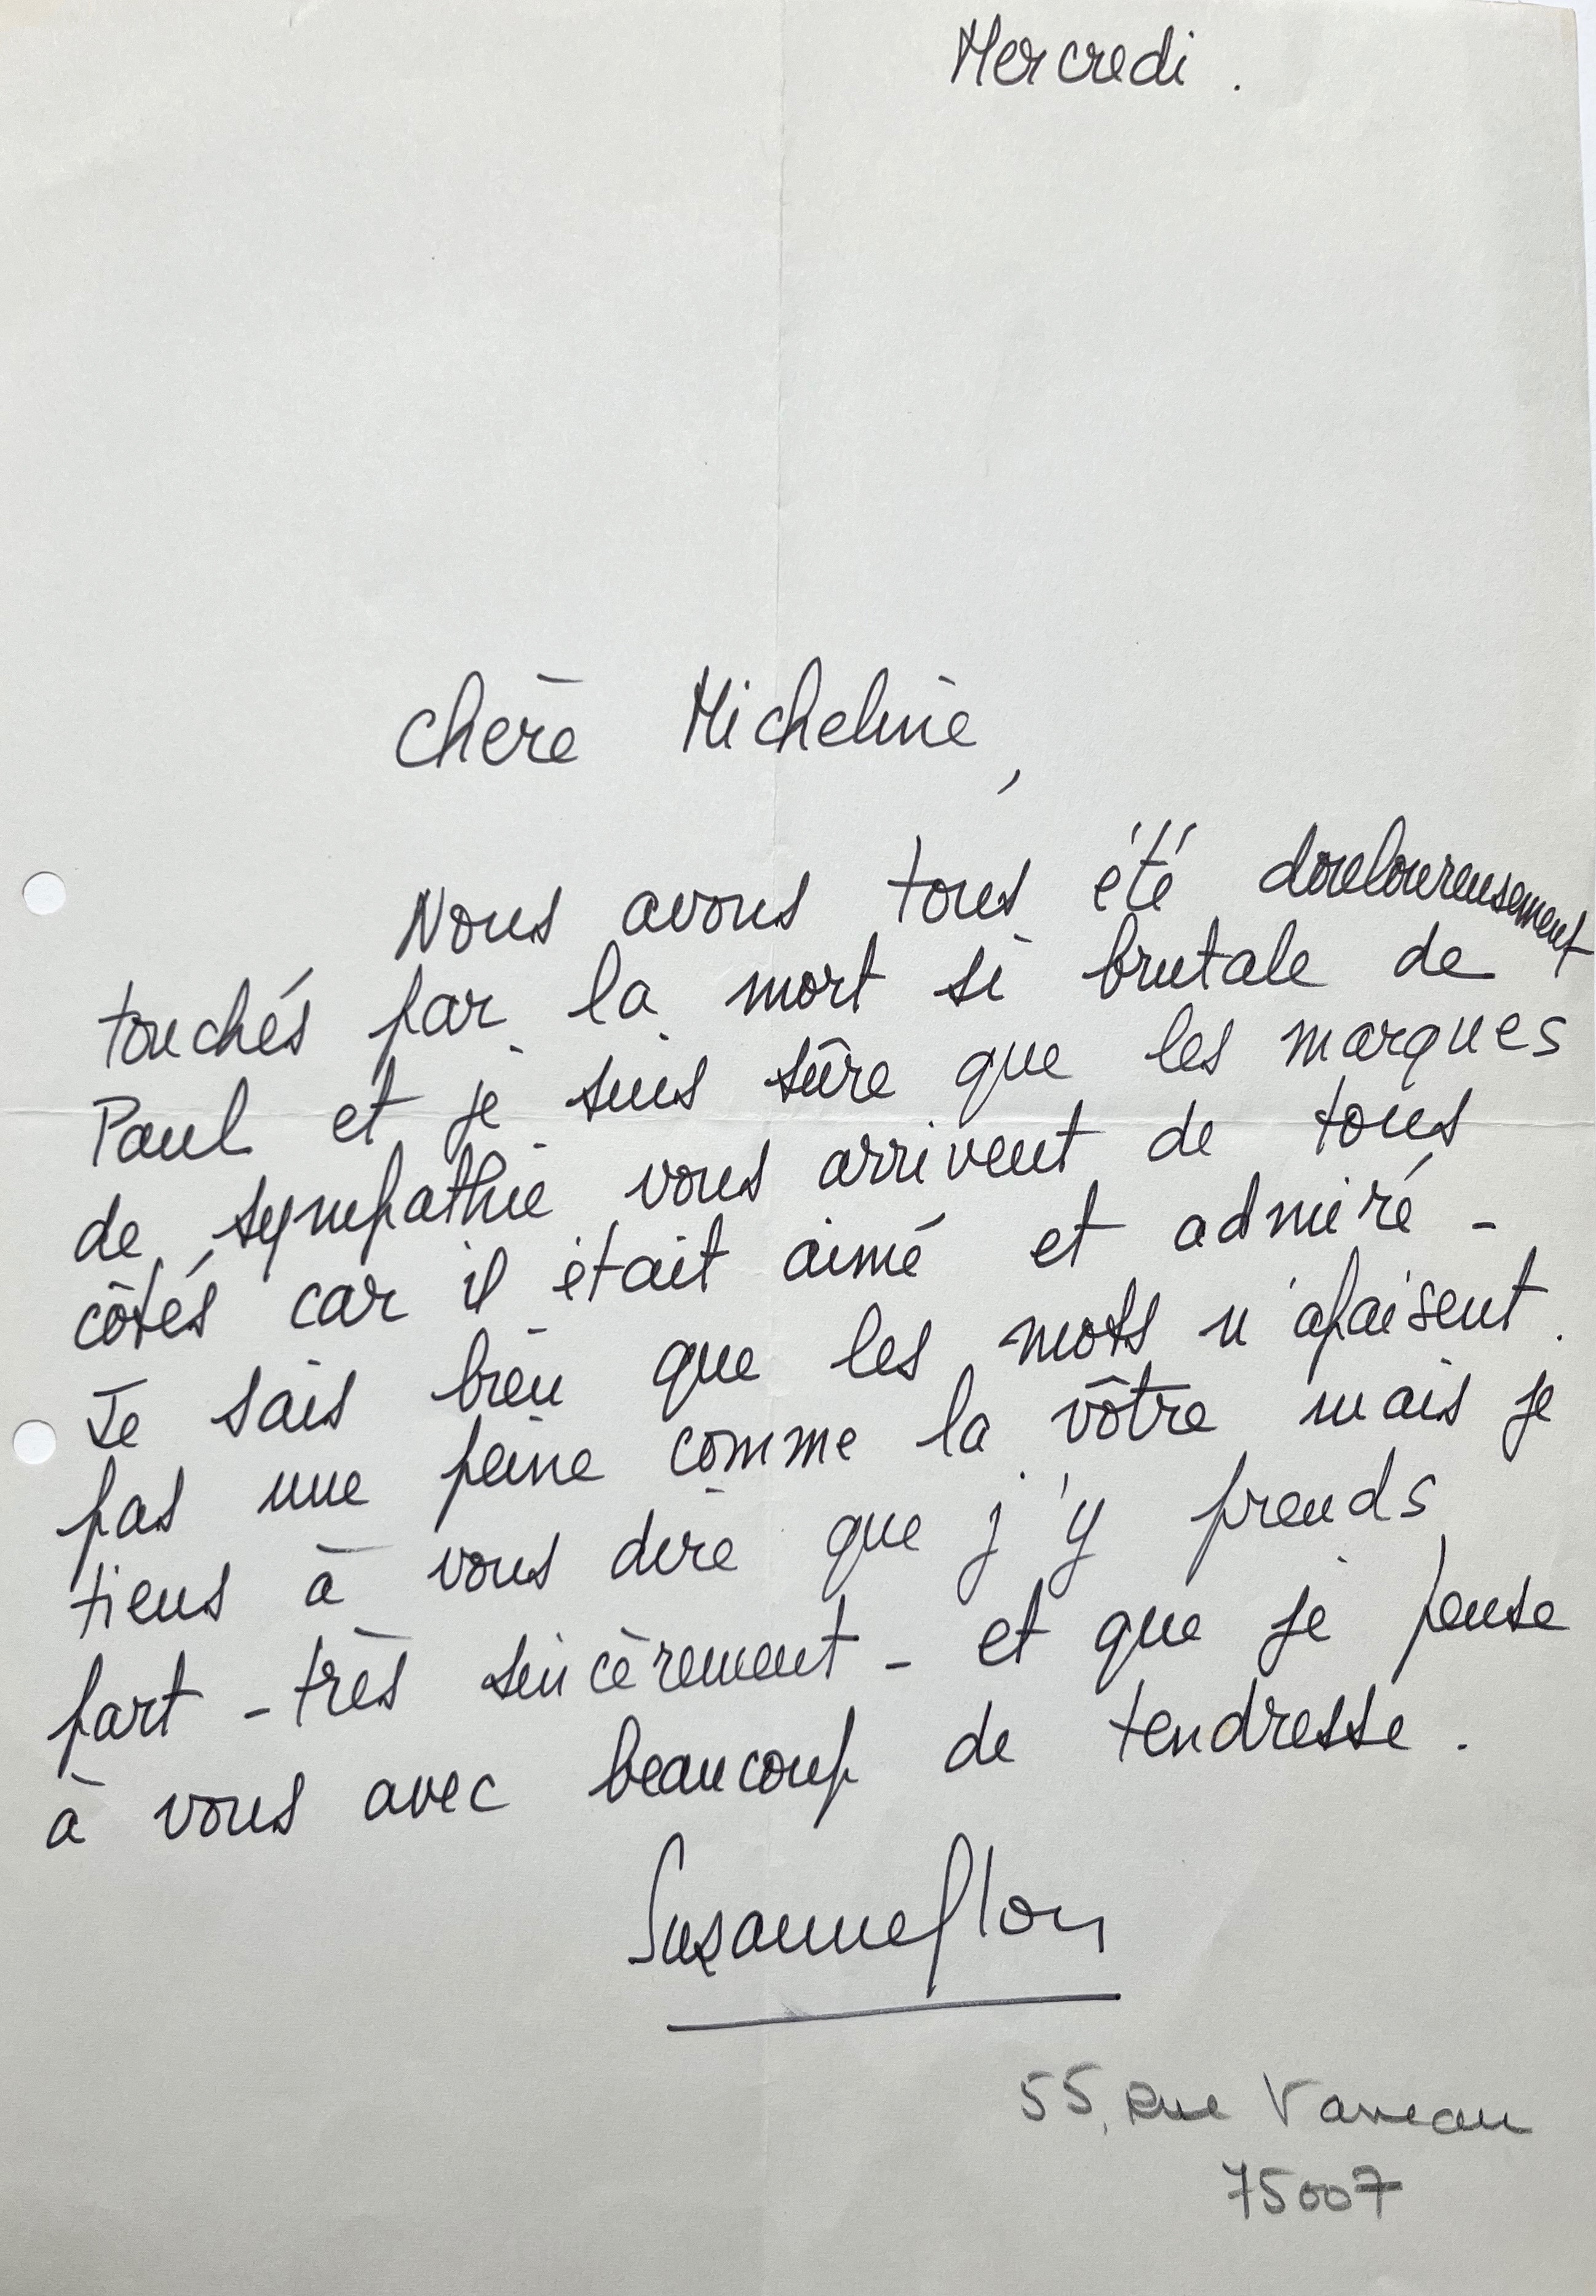 Mercredi.
Chère Micheline,
Nous avons tous été douloureusement
touchés par la mort si brutale de
Paul et je suis sûre que les marques
de sympathie vous arrivent de tous
côtés car il était aimé et admiré -
Je sais bien que les mots n'apaisent
pas une peine comme la vôtre mais je
tiens à vous dire que j'y prends
part - très sincèrement - et que je pense
à vous avec beaucoup de tendresse.
Suzanne Flon
55, Rue Vaneau
75007